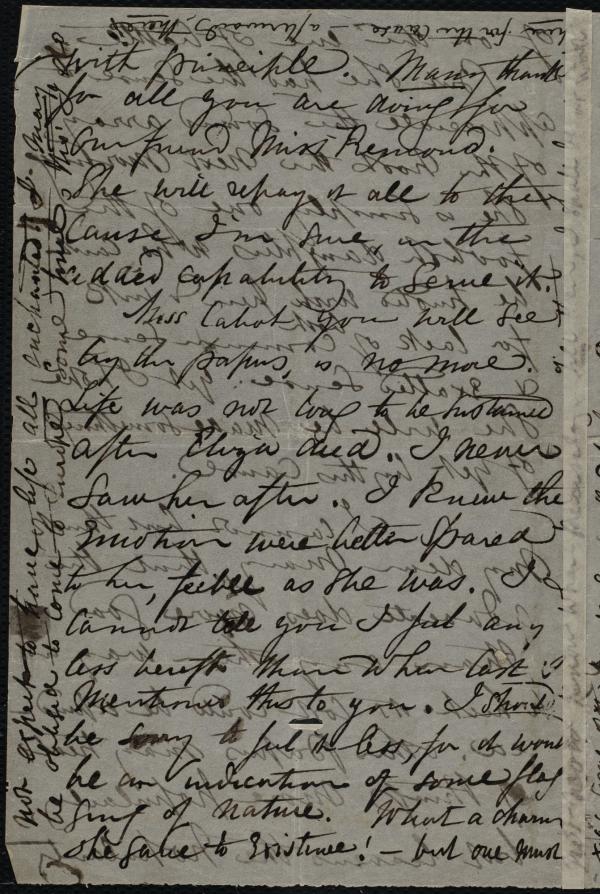 with principle. Many thanks
for all you are doing for
our friend Miss Remond.
She will repay it all to the
Cause I'm sure, in the
added capability to serve it.
Miss Cabot, you will see
by the papers, is no more.
Life was not long to be sustained
after Eliza died. I never
saw her after. I knew the
emotion were better spared
to her, feeble as she was. I
cannot tell you I feel any
less bereft than when last I
mentioned this to you. I should
be sorry to feel it less, for it would
be an indication of some flag
ging of nature. What a charm
she gave to existence! — but one must
not expect to have life all enchanted
be obliged to come to market some time
here for the Cause — afterwards, theirs